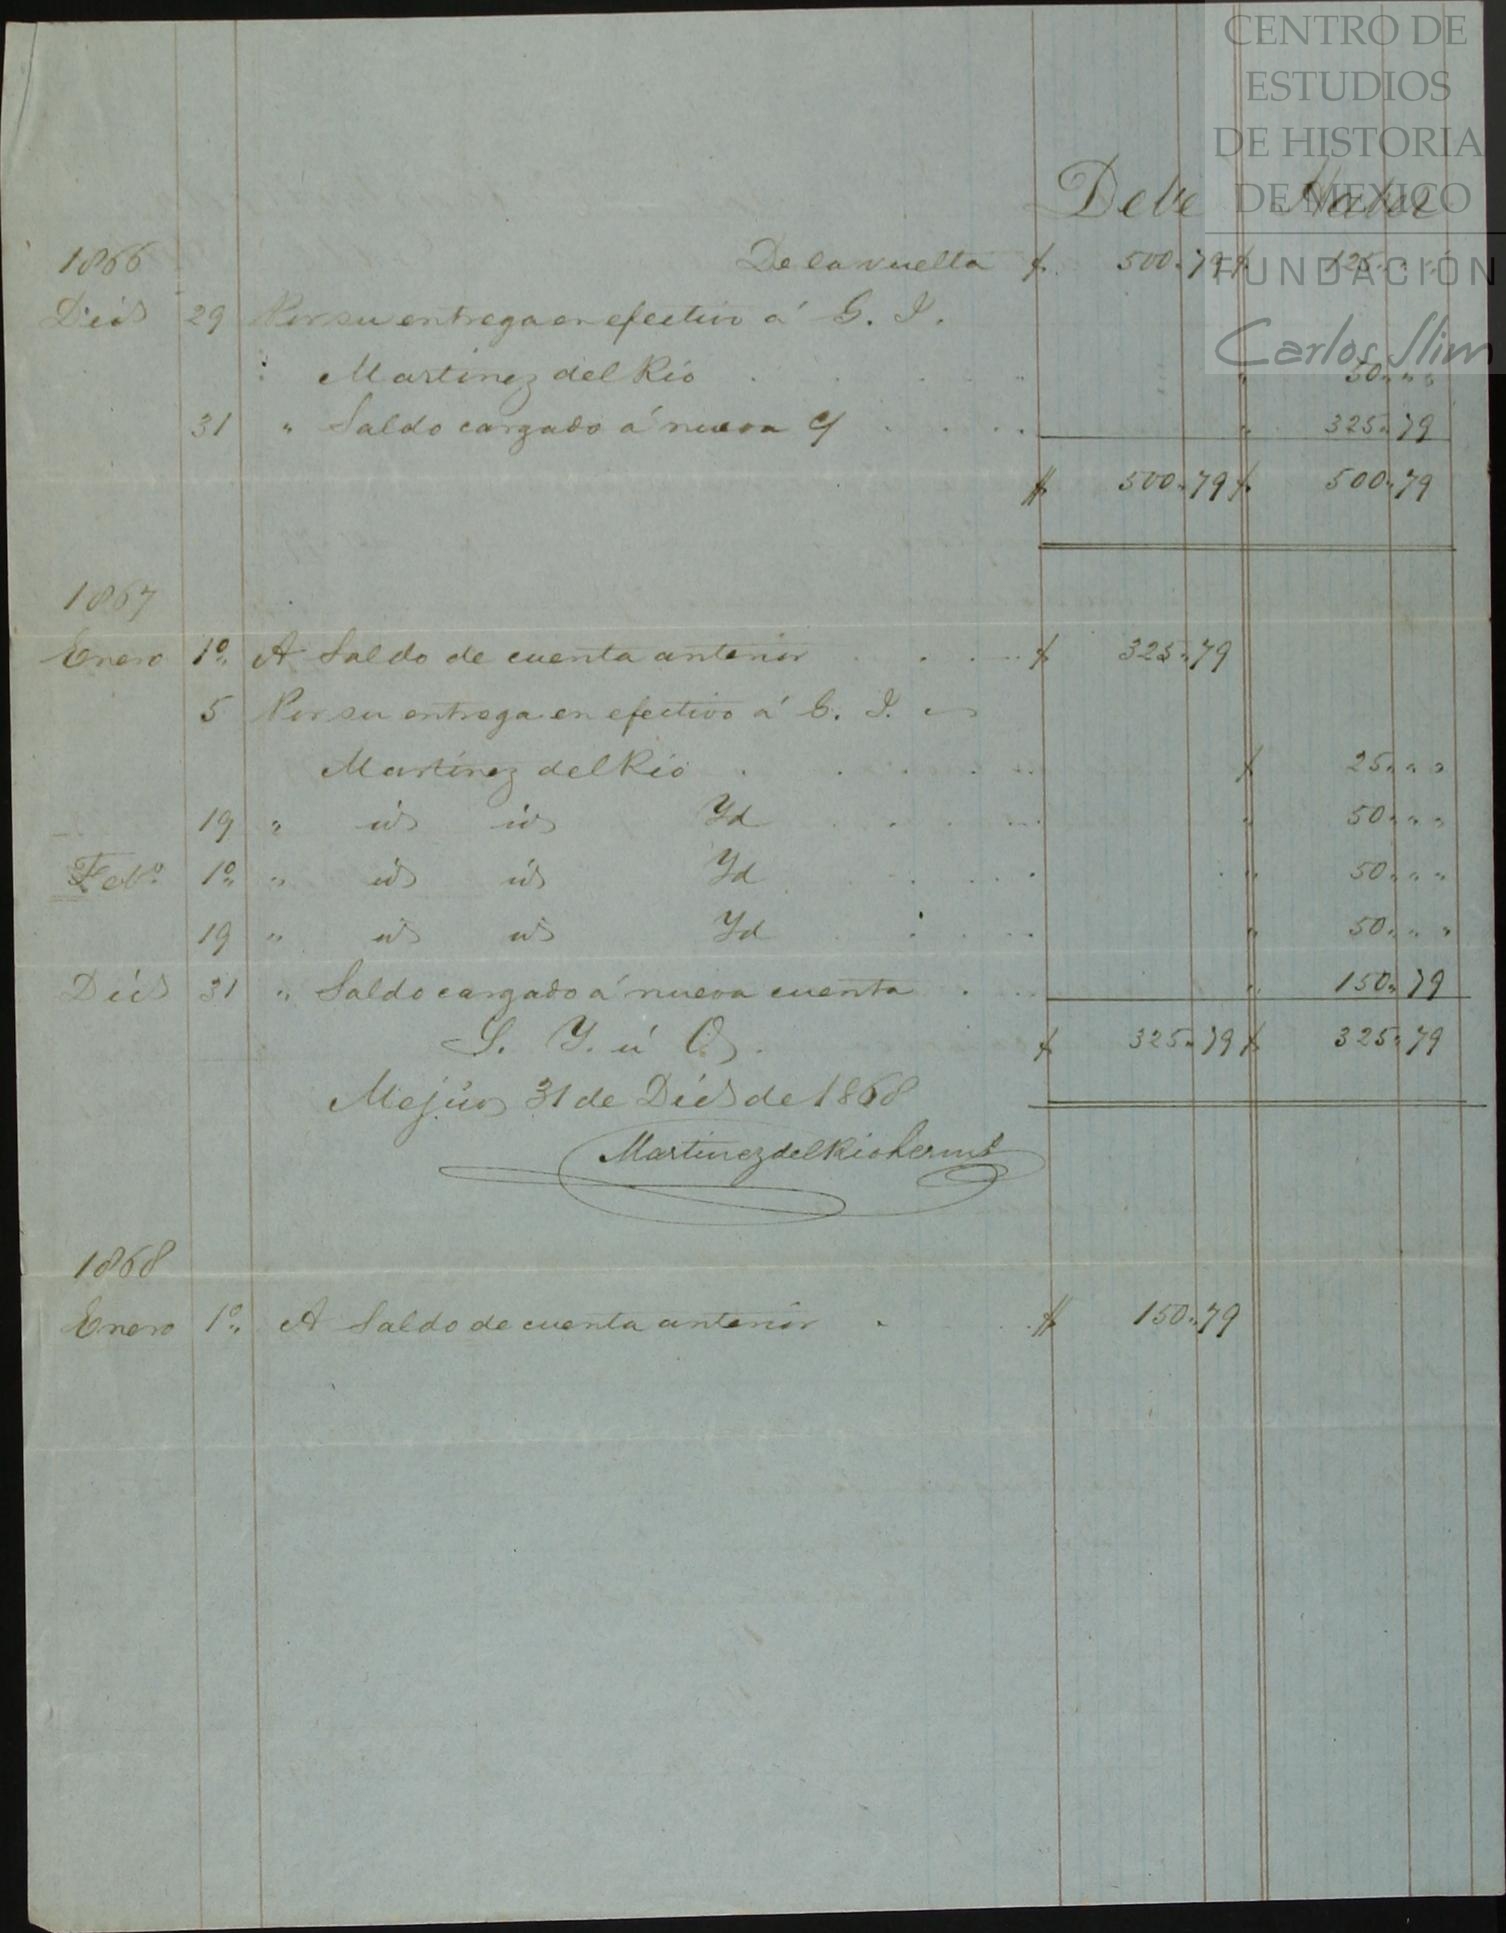 CENTRO DE
ESTUDIOS
DE HISTORIA
DE MEXICO
FUNDACIÓN
Carlos Slim
Debe Haber
1866 De la vuelta $ 500 " 79 $ 125 " " "
Dic 29 Por su entrega en efectivo á G. I.
Martinez del Rio " 50 " " "
31 " Saldo cargado á nueva C/ " 325 " 79
$ 500 " 79 $ 500 " 79
1867
Enero 1º " A Saldo de cuenta anterior $ 325 " 79
5 Por su entrega en efectivo á G. I.
Martinez del Rio $ 25 " " "
19 " id id Yd " 50 " " "
Febº 1º " " id id Yd " 50 " " "
19 " id id Yd " 50 " " "
Dic 31 " Saldo cargado á nueva cuenta " 150 " 79
S. Y. ú O. $ 325 " 79 $ 325 " 79
Mejico 31 de Dic de 1868
Martinez del Rio herms
1868
Enero 1º " A Saldo de cuenta anterior $ 150 " 79